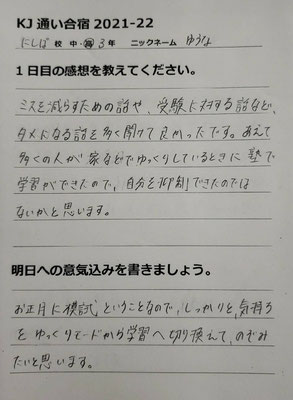 KJ 通い合宿 2021-22
にしば 校 中・高 3年 ニックネーム ゆうな
１日目の感想を教えてください。
ミスを減らすための話や、受験に対する話など、
タメになる話を多く聞けて良かったです。あえて
多くの人が家などでゆっくりしているときに塾で
学習ができたので、自分を抑制できたのでは
ないかと思います。
明日への意気込みを書きましょう。
お正月に模試、ということなので、しっかりと、気持ち
をゆっくりモードから学習へ切り換えて、のぞみ
たいと思います。